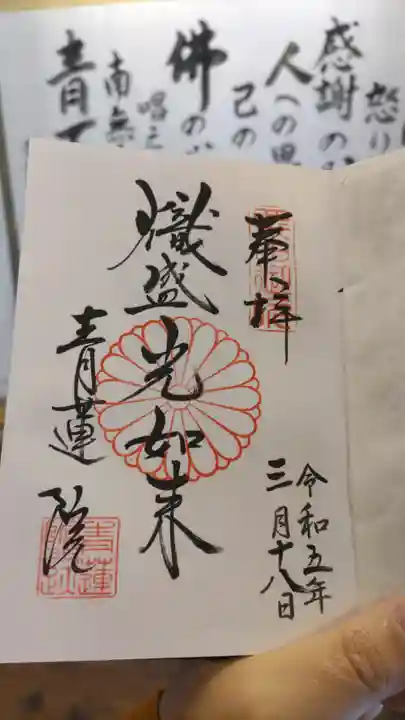 奉拝
熾盛光如来
青蓮院
令和五年
三月十八日
感謝の
人への
己の
佛の
唱え
南無
青